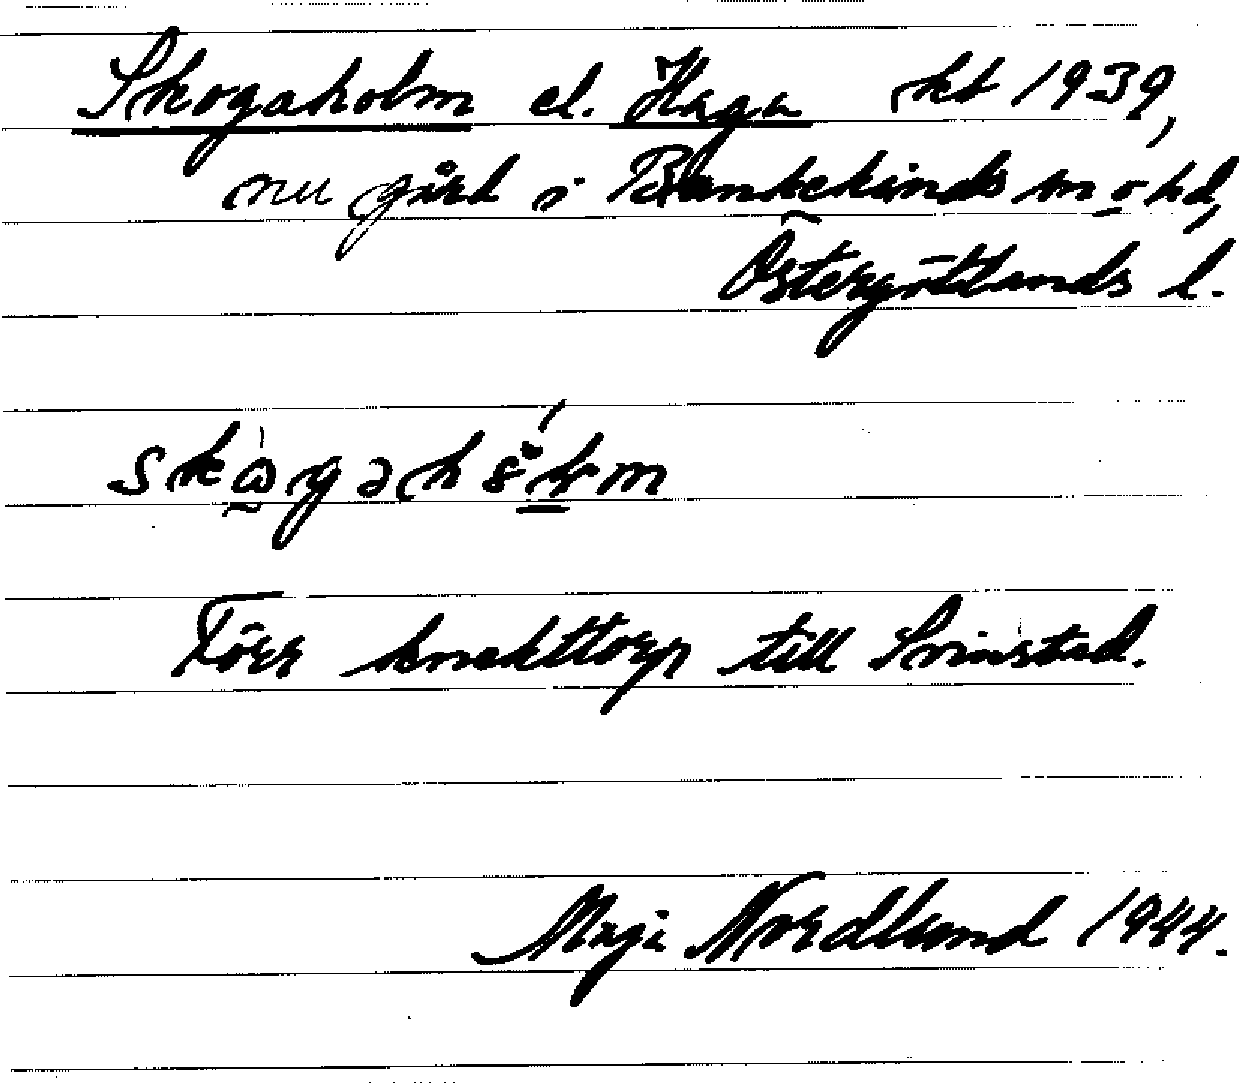 Skogaholm el. Haga kt 1939,
nu gård i Bankekinds sn o hd,
Östergötlands l.
Förr knekttorp till Svinstad.
Maja Nordlund 1944.